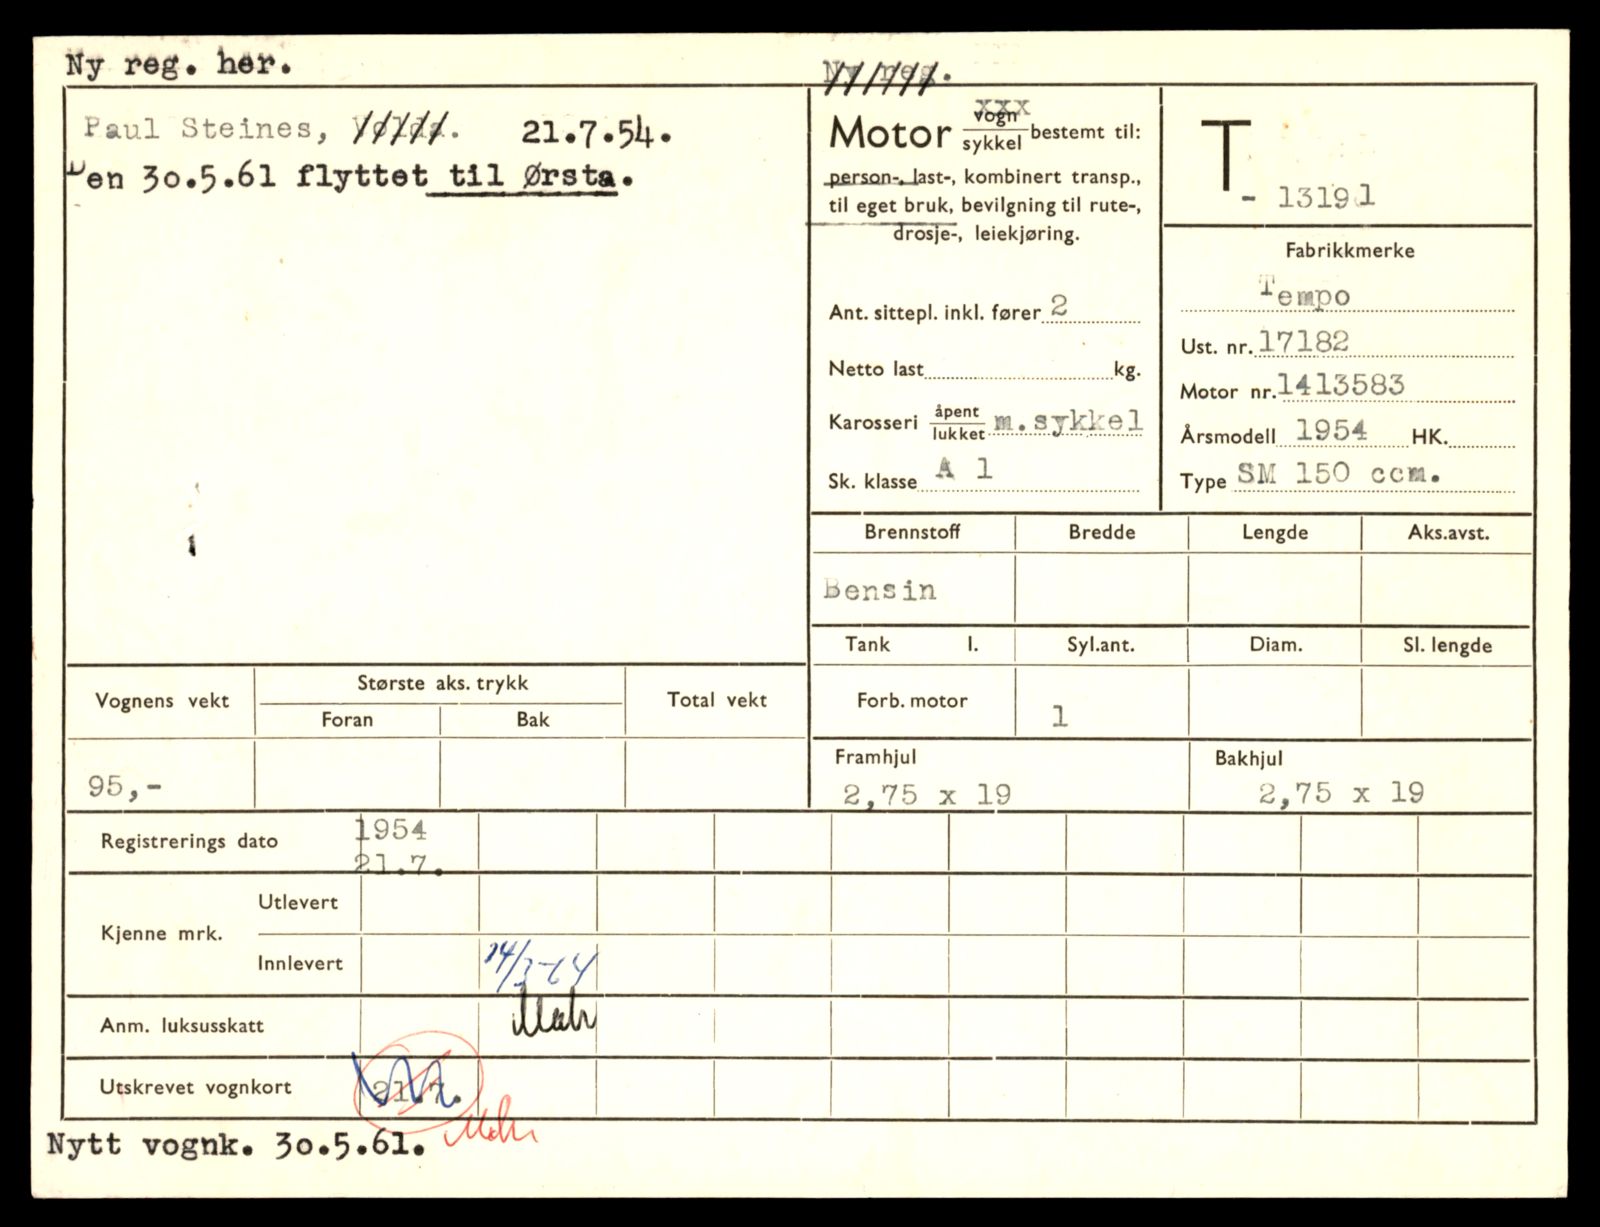 Ny reg. her.
Ny reg.
Paul Steines, Volda. 21.7.54.
Den 30.5.61 flyttet til Ørsta.
Motor vogn xxx / sykkel bestemt til:
person-, last-, kombinert transp.,
til eget bruk, bevilgning til rute-,
drosje-, leiekjøring.
Ant. sittepl. inkl. fører 2
Netto last kg.
Karosseri åpent / lukket m.sykkel
Sk. klasse A 1
T - 13191
Fabrikkmerke
Tempo
Ust. nr. 17182
Motor nr. 1413583
Årsmodell 1954 HK.
Type SM 150 ccm.
Brennstoff Bredde Lengde Aks.avst.
Bensin
Tank l. Syl.ant. Diam. Sl. lengde
Forb. motor 1
Framhjul Bakhjul
2,75 x 19 2,75 x 19
Vognens vekt Største aks. trykk Total vekt
Foran Bak
95,-
Registrerings dato 1954
21.7.
Kjenne mrk. Utlevert
Innlevert 14/3-64
Anm. luksusskatt
Utskrevet vognkort 21.7.
Nytt vognk. 30.5.61.